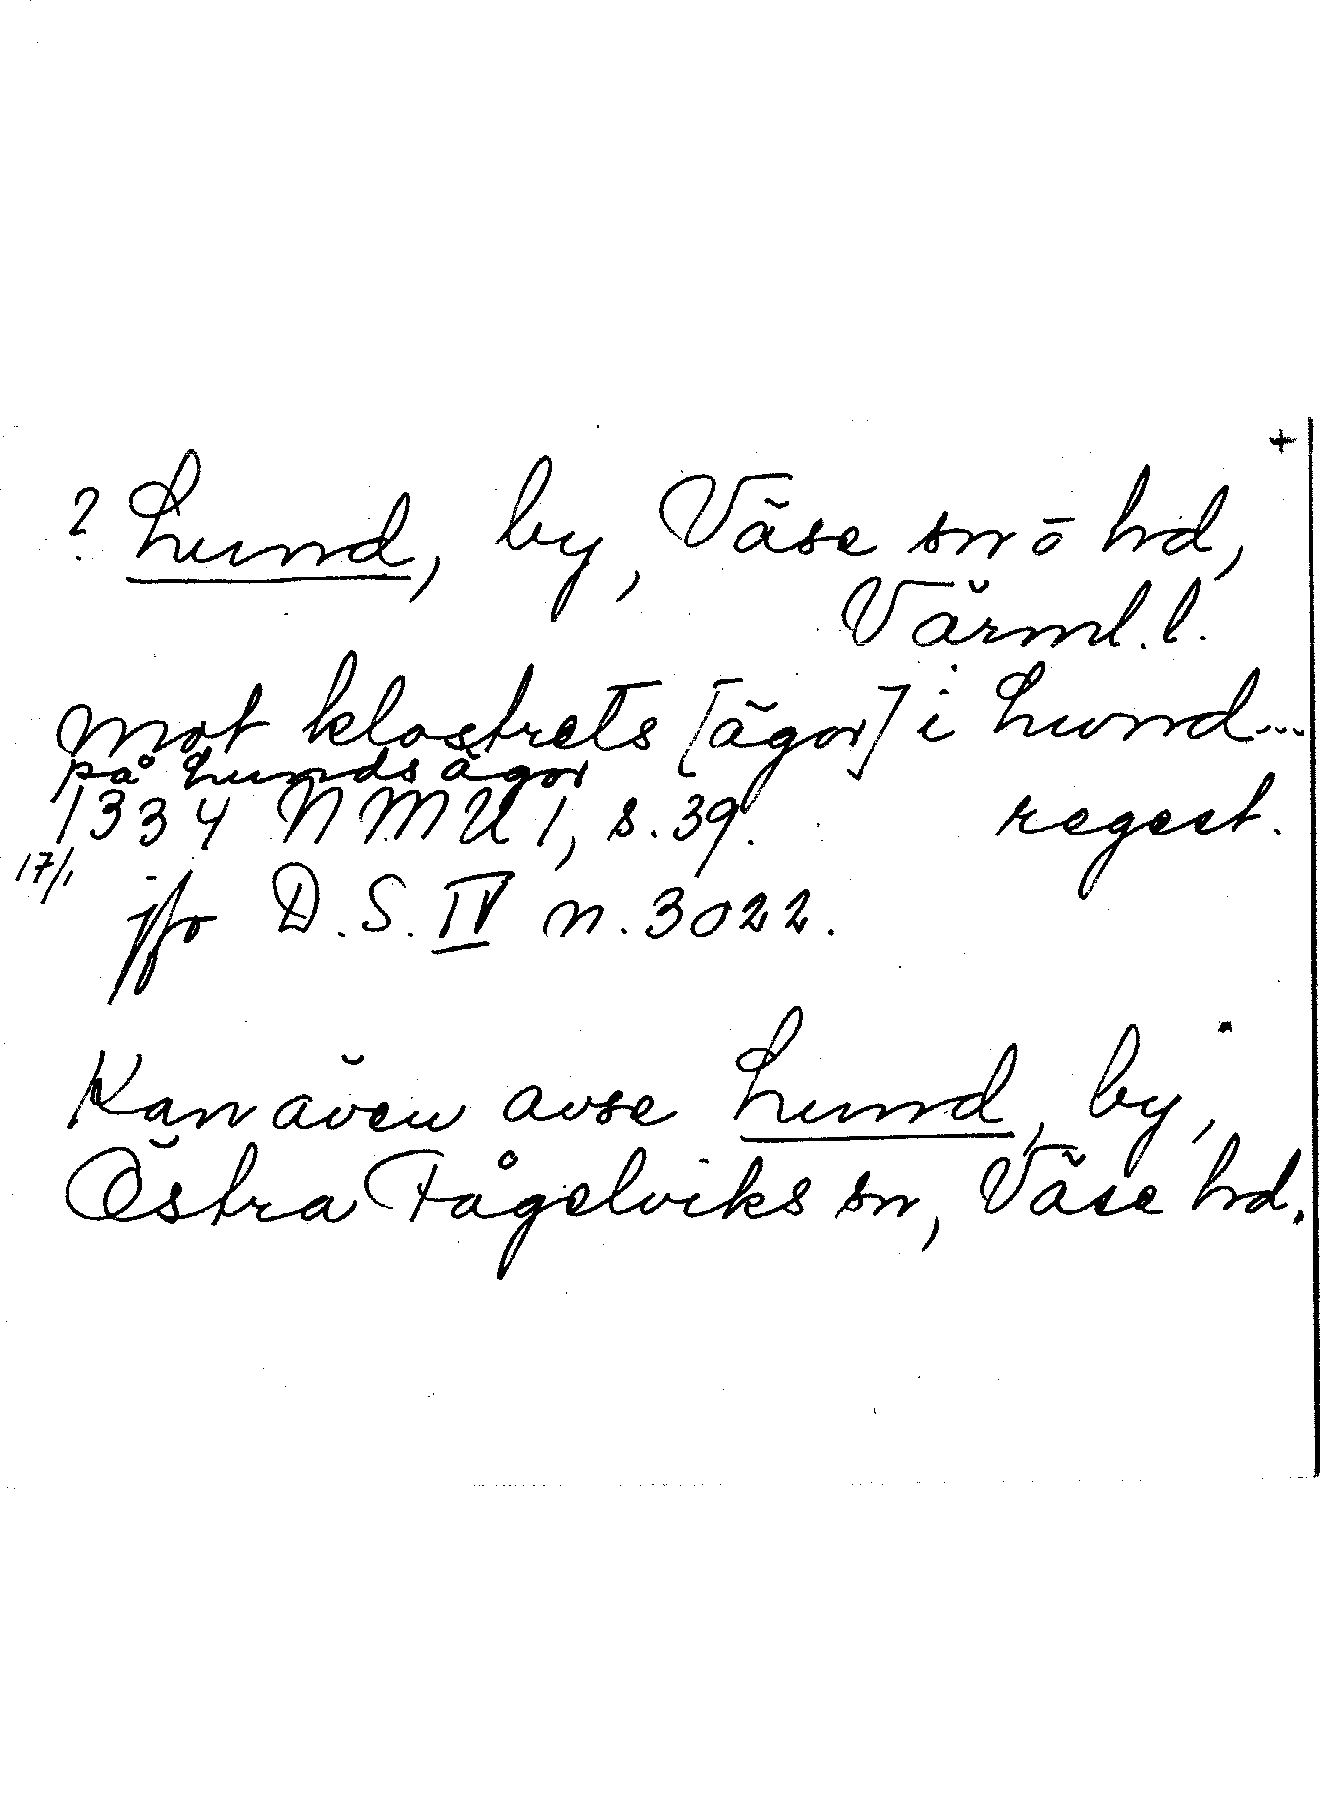 +
? Lund, by, Väse sn ö hd,
Värml. l.
mot klostrets [ägor] i Lund...
på Lunds ägor
1334 NMU 1, s. 39. regest.
17/1
jfo D.S. IV n. 3022.
Kan även avse Lund, by,
Östra Fågelviks sn, Väse hd.